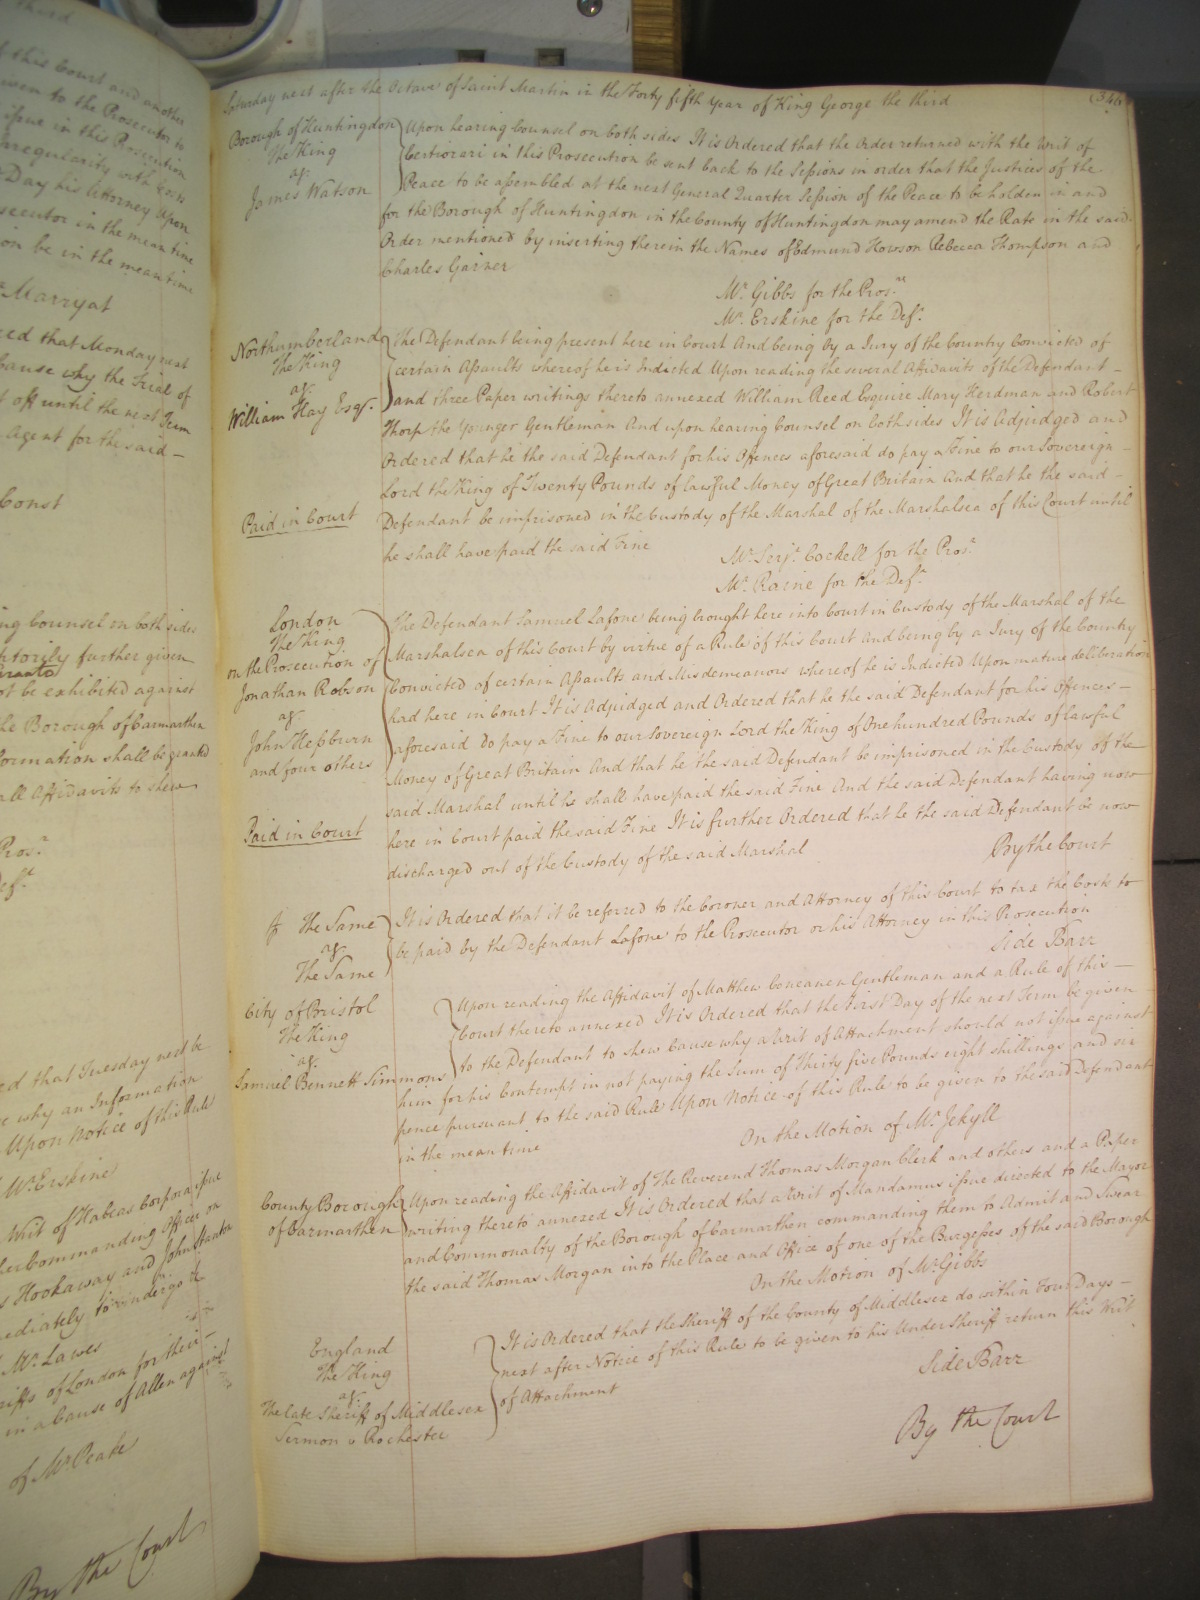 third
f this Court and another
iven to the Prosecutor to
issue in this Prosecution
rregularity with Costs
Day his Attorney upon
secutor in the mean time
on be in the meantime
Marryat
red that Monday next
Cause why the Trial of
t off until the next Term
Agent for the said
Const
ing Counsel on both sides
further given
ot be exhibited against
the Borough of Carmarthen
formation shall be granted
all Affidavits to shew
Pros.r
Def.t
ed that Tuesday next be
e why an Information
Upon Notice of this Rule
Mr Erskine
Writ of Habeas Corpora issue
Commanding Officer on
s Hookaway and John Stanton
mediately to undergo the
Mr. Lawes
riffs of London for their
in a Cause of Allen against
of Mr Peake
By the Court
Saturday next after the Octave of Saint Martin in the Forty fifth Year of King George the third
(346
Borough of Huntingdon
The King
ag.t
James Watson
Upon hearing Counsel on both sides It is Ordered that the Order returned with the Writ of
Certiorari in this Prosecution be sent back to the Sessions in order that the Justices of the
Peace to be assembled at the next General Quarter Session of the Peace to be holden in and
for the Borough of Huntingdon in the County of Huntingdon may amend the Rate in the said
Order mentioned by inserting therein the Names of Edmund Howson Rebecca Thompson and
Charles Gariner
Mr. Gibbs for the Pros.or
Mr. Erskine for the Def.t
Northumberland
The King
ag.t
William Hay Esqr.
Paid in Court
The Defendant being present here in Court And being by a Jury of the Country Convicted of
certain Assaults whereof he is Indicted Upon reading the several Affidavits of the Defendant
and three Paper writings thereto annexed William Reed Esquire Mary Herdman and Robert
Thorp the Younger Gentleman And upon hearing Counsel on both sides It is Adjudged and
Ordered that he the said Defendant for his Offences aforesaid do pay a Fine to our Sovereign
Lord the King of Twenty Pounds of lawful Money of Great Britain And that he the said
Defendant be imprisoned in the Custody of the Marshal of the Marshalsea of this Court until
he shall have paid the said Fine
Mr. Serj.t Cockell for the Pros.r
Mr. Raine for the Def.t
London
The King
on the Prosecution of
Jonathan Robson
ag.t
John Hepburn
and four others
Paid in Court
The Defendant Samuel Lafone being brought here into Court in Custody of the Marshal of the
Marshalsea of this Court by virtue of a Rule of this Court And being by a Jury of the Country
Convicted of certain Assaults and Misdemeanors whereof he is Indicted Upon mature deliberation
had here in Court It is Adjudged and Ordered that he the said Defendant for his Offences
aforesaid do pay a Fine to our Sovereign Lord the King of One hundred Pounds of lawful
Money of Great Britain And that he the said Defendant be imprisoned in the Custody of the
said Marshal until he shall have paid the said Fine And the said Defendant having now
here in Court paid the said Fine It is further Ordered that he the said Defendant be now
discharged out of the Custody of the said Marshal
By the Court
The Same
ag.t
The Same
It is Ordered that it be referred to the Coroner and Attorney of this Court to tax the Costs to
be paid by the Defendant Lafone to the Prosecutor or his Attorney in this Prosecution
Side Barr
City of Bristol
The King
ag.t
Samuel Bennett Simmons
Upon reading the Affidavit of Matthew Concanen Gentleman and a Rule of this
Court thereto annexed It is Ordered that the First Day of the next Term be given
to the Defendant to shew Cause why a Writ of Attachment should not issue against
him for his Contempt in not paying the Sum of Thirty five Pounds eight shillings and six
pence pursuant to the said Rule Upon Notice of this Rule to be given to the said Defendant
in the mean time
On the Motion of Mr. Jekyll
County Borough
of Carmarthen
Upon reading the Affidavit of The Reverend Thomas Morgan Clerk and others and a Paper
writing thereto annexed It is Ordered that a Writ of Mandamus issue directed to the Mayor
and Commonalty of the Borough of Carmarthen commanding them to Admit and Swear
the said Thomas Morgan into the Place and Office of one of the Burgesses of the said Borough
On the Motion of Mr. Gibbs
England
The King
ag.t
The late Sheriff of Middlesex
Sermon v Rochester
It is Ordered that the Sheriff of the County of Middlesex do within Four Days
next after Notice of this Rule to be given to his Under Sheriff return this Writ
of Attachment
Side Barr
By the Court